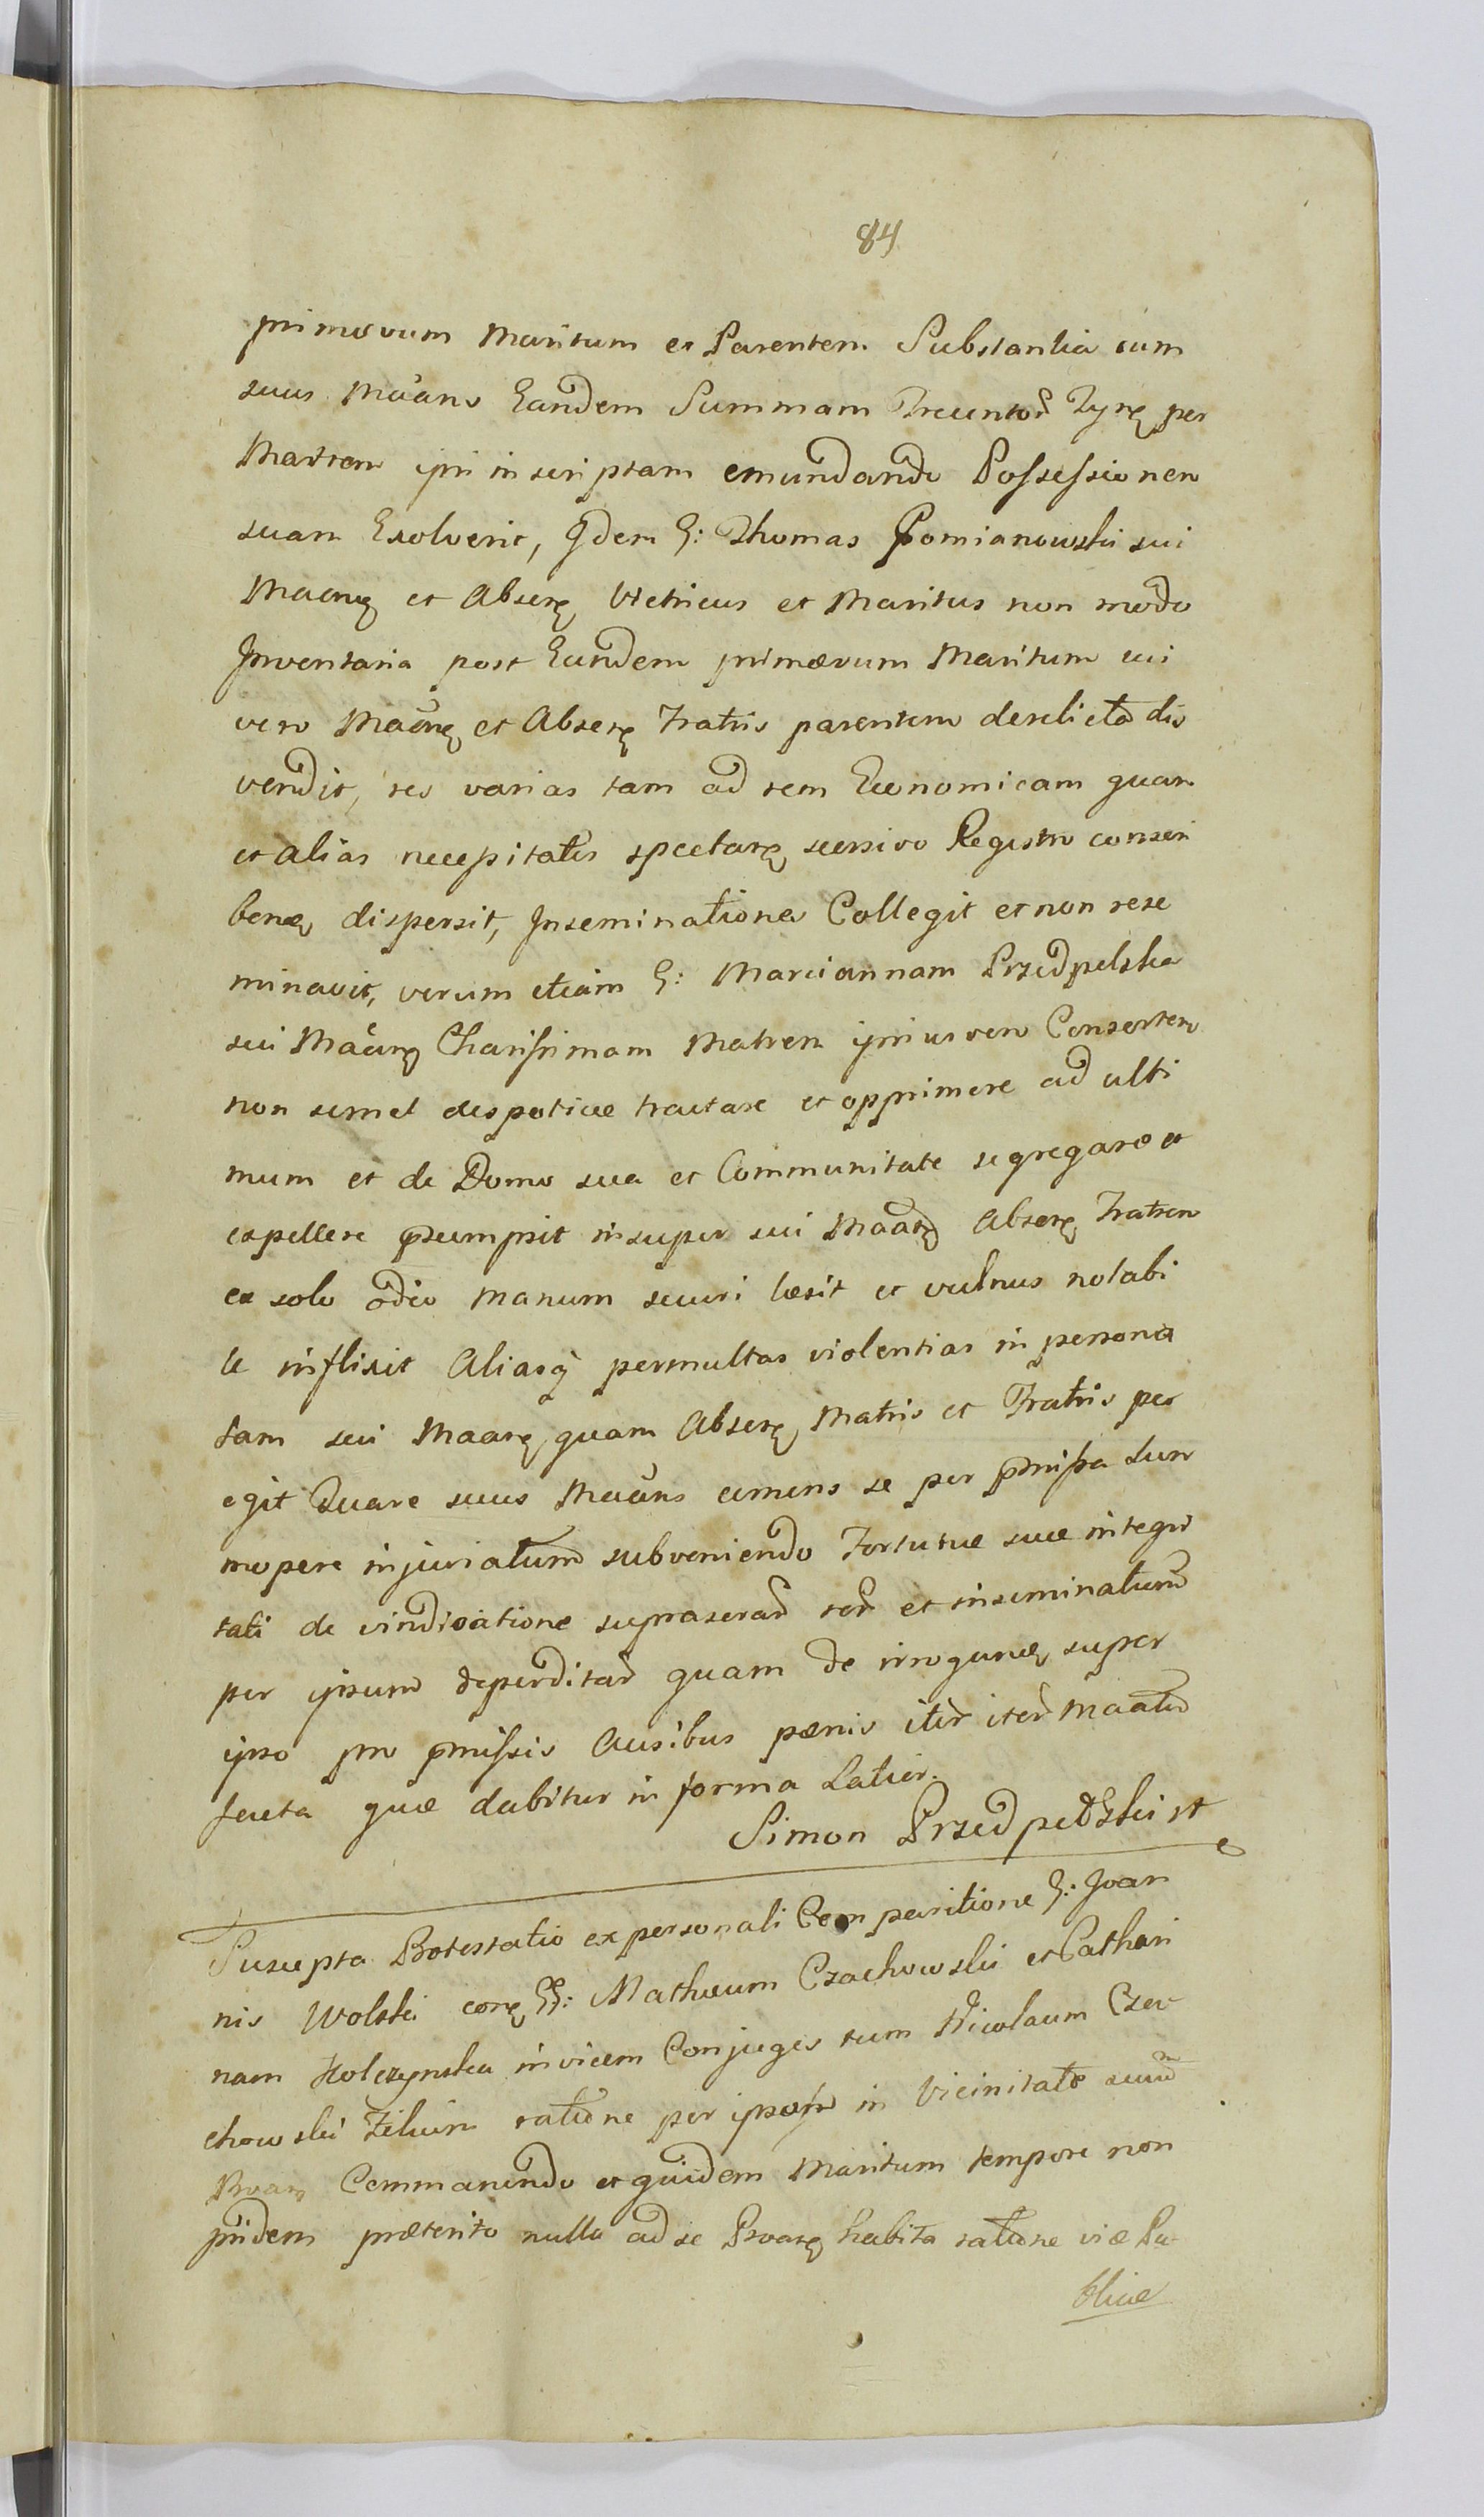 84
primævum Maritum et Parentem Substantia cum
suus Maãns Eandem Summam Trecentoꝝ Tynꝭ per
Matrem ipsi inscriptam emundando Possessionem
suam Exolverit, Qdem G: Thomas Pomianowski sui
Maanꝭ et Absenꝭ Vitricus et Maritus non modo
Inventaria post Eundem primævum Maritum sui
vero Maãnꝭ et Absenꝭ Fratris parentem derelicta dis
vendit, res varias tam ad rem Economicam quam
et alias necessitates spectanꝭ seersivo Registro conscri
benꝭ dispersit, Inseminationes Collegit et non rese
minavit, verum etiam G: Mariannam Przedpelska
sui Maãnꝭ Charissimam Matrem ipsius vero Consortem
non semel despotice tractare et opprimere ad ulti
mum et de Domo sua et Communitate segregare et
expellere p̃sumpsit insuper sui Maãnꝭ Absenꝭ Fratrem
ex solo odio manum securi læsit et vulnus notabi
le inflixit Aliasq̃ permultas violentias in persona
tam sui Maanꝭ quam Absenꝭ Matris et Fratris per
egit Quare suus Maãns cernens se per p̃missa sum
mopere injuriatum subveniendo Fortunæ suæ integri
tati de vindicatione supraseraꝝ reꝝ et inseminatum
per ipsum deperditaꝝ quam de irroganꝭ super
ipso pro p̃missis Ausibus pænis iteꝝ iteꝝ Maatur
Juncta quæ dabitur in forma Latior.
Simon Przedpełski st
Suscepta Protestatio ex personali Comparitione G: Joan
nis Wolski conꝭ GG: Mathæum Czachowski et Cathari
nam Holczynska invicem Conjuges tum Nicolaum Cza
chowski Filium ratione per ipsos in Vicinitate suum
Proanꝭ Commanendo et quidem Maritum tempore non
pridem præterito nulla ad se Proanꝭ habita ratione viæ Pu
blicæ